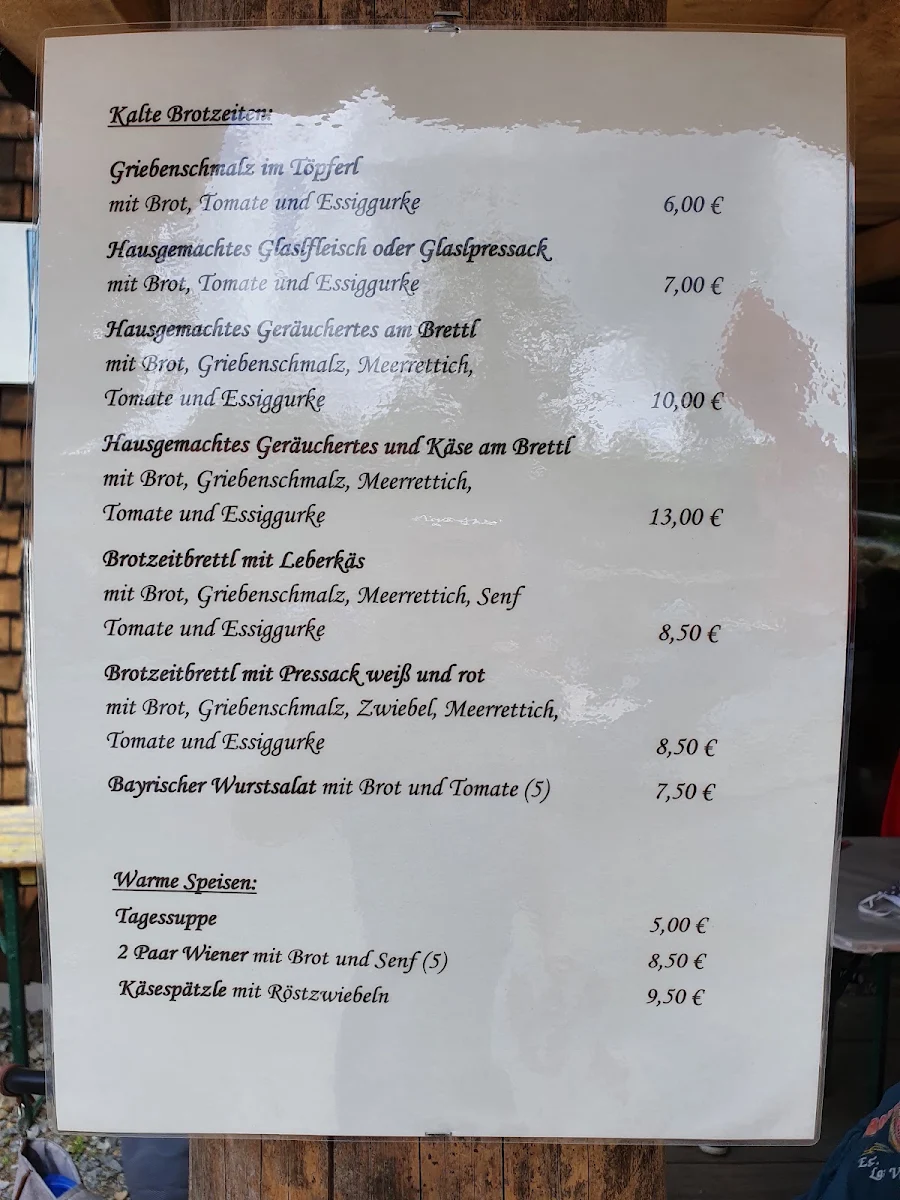 Kalte Brotzeiten:
Griebenschmalz im Töpferl
mit Brot, Tomate und Essiggurke 6,00 €
Hausgemachtes Glaslfleisch oder Glaslpressack
mit Brot, Tomate und Essiggurke 7,00 €
Hausgemachtes Geräuchertes am Brettl
mit Brot, Griebenschmalz, Meerrettich,
Tomate und Essiggurke 10,00 €
Hausgemachtes Geräuchertes und Käse am Brettl
mit Brot, Griebenschmalz, Meerrettich,
Tomate und Essiggurke 13,00 €
Brotzeitbrettl mit Leberkäs
mit Brot, Griebenschmalz, Meerrettich, Senf
Tomate und Essiggurke 8,50 €
Brotzeitbrettl mit Pressack weiß und rot
mit Brot, Griebenschmalz, Zwiebel, Meerrettich,
Tomate und Essiggurke 8,50 €
Bayrischer Wurstsalat mit Brot und Tomate (5) 7,50 €
Warme Speisen:
Tagessuppe 5,00 €
2 Paar Wiener mit Brot und Senf (5) 8,50 €
Käsespätzle mit Röstzwiebeln 9,50 €